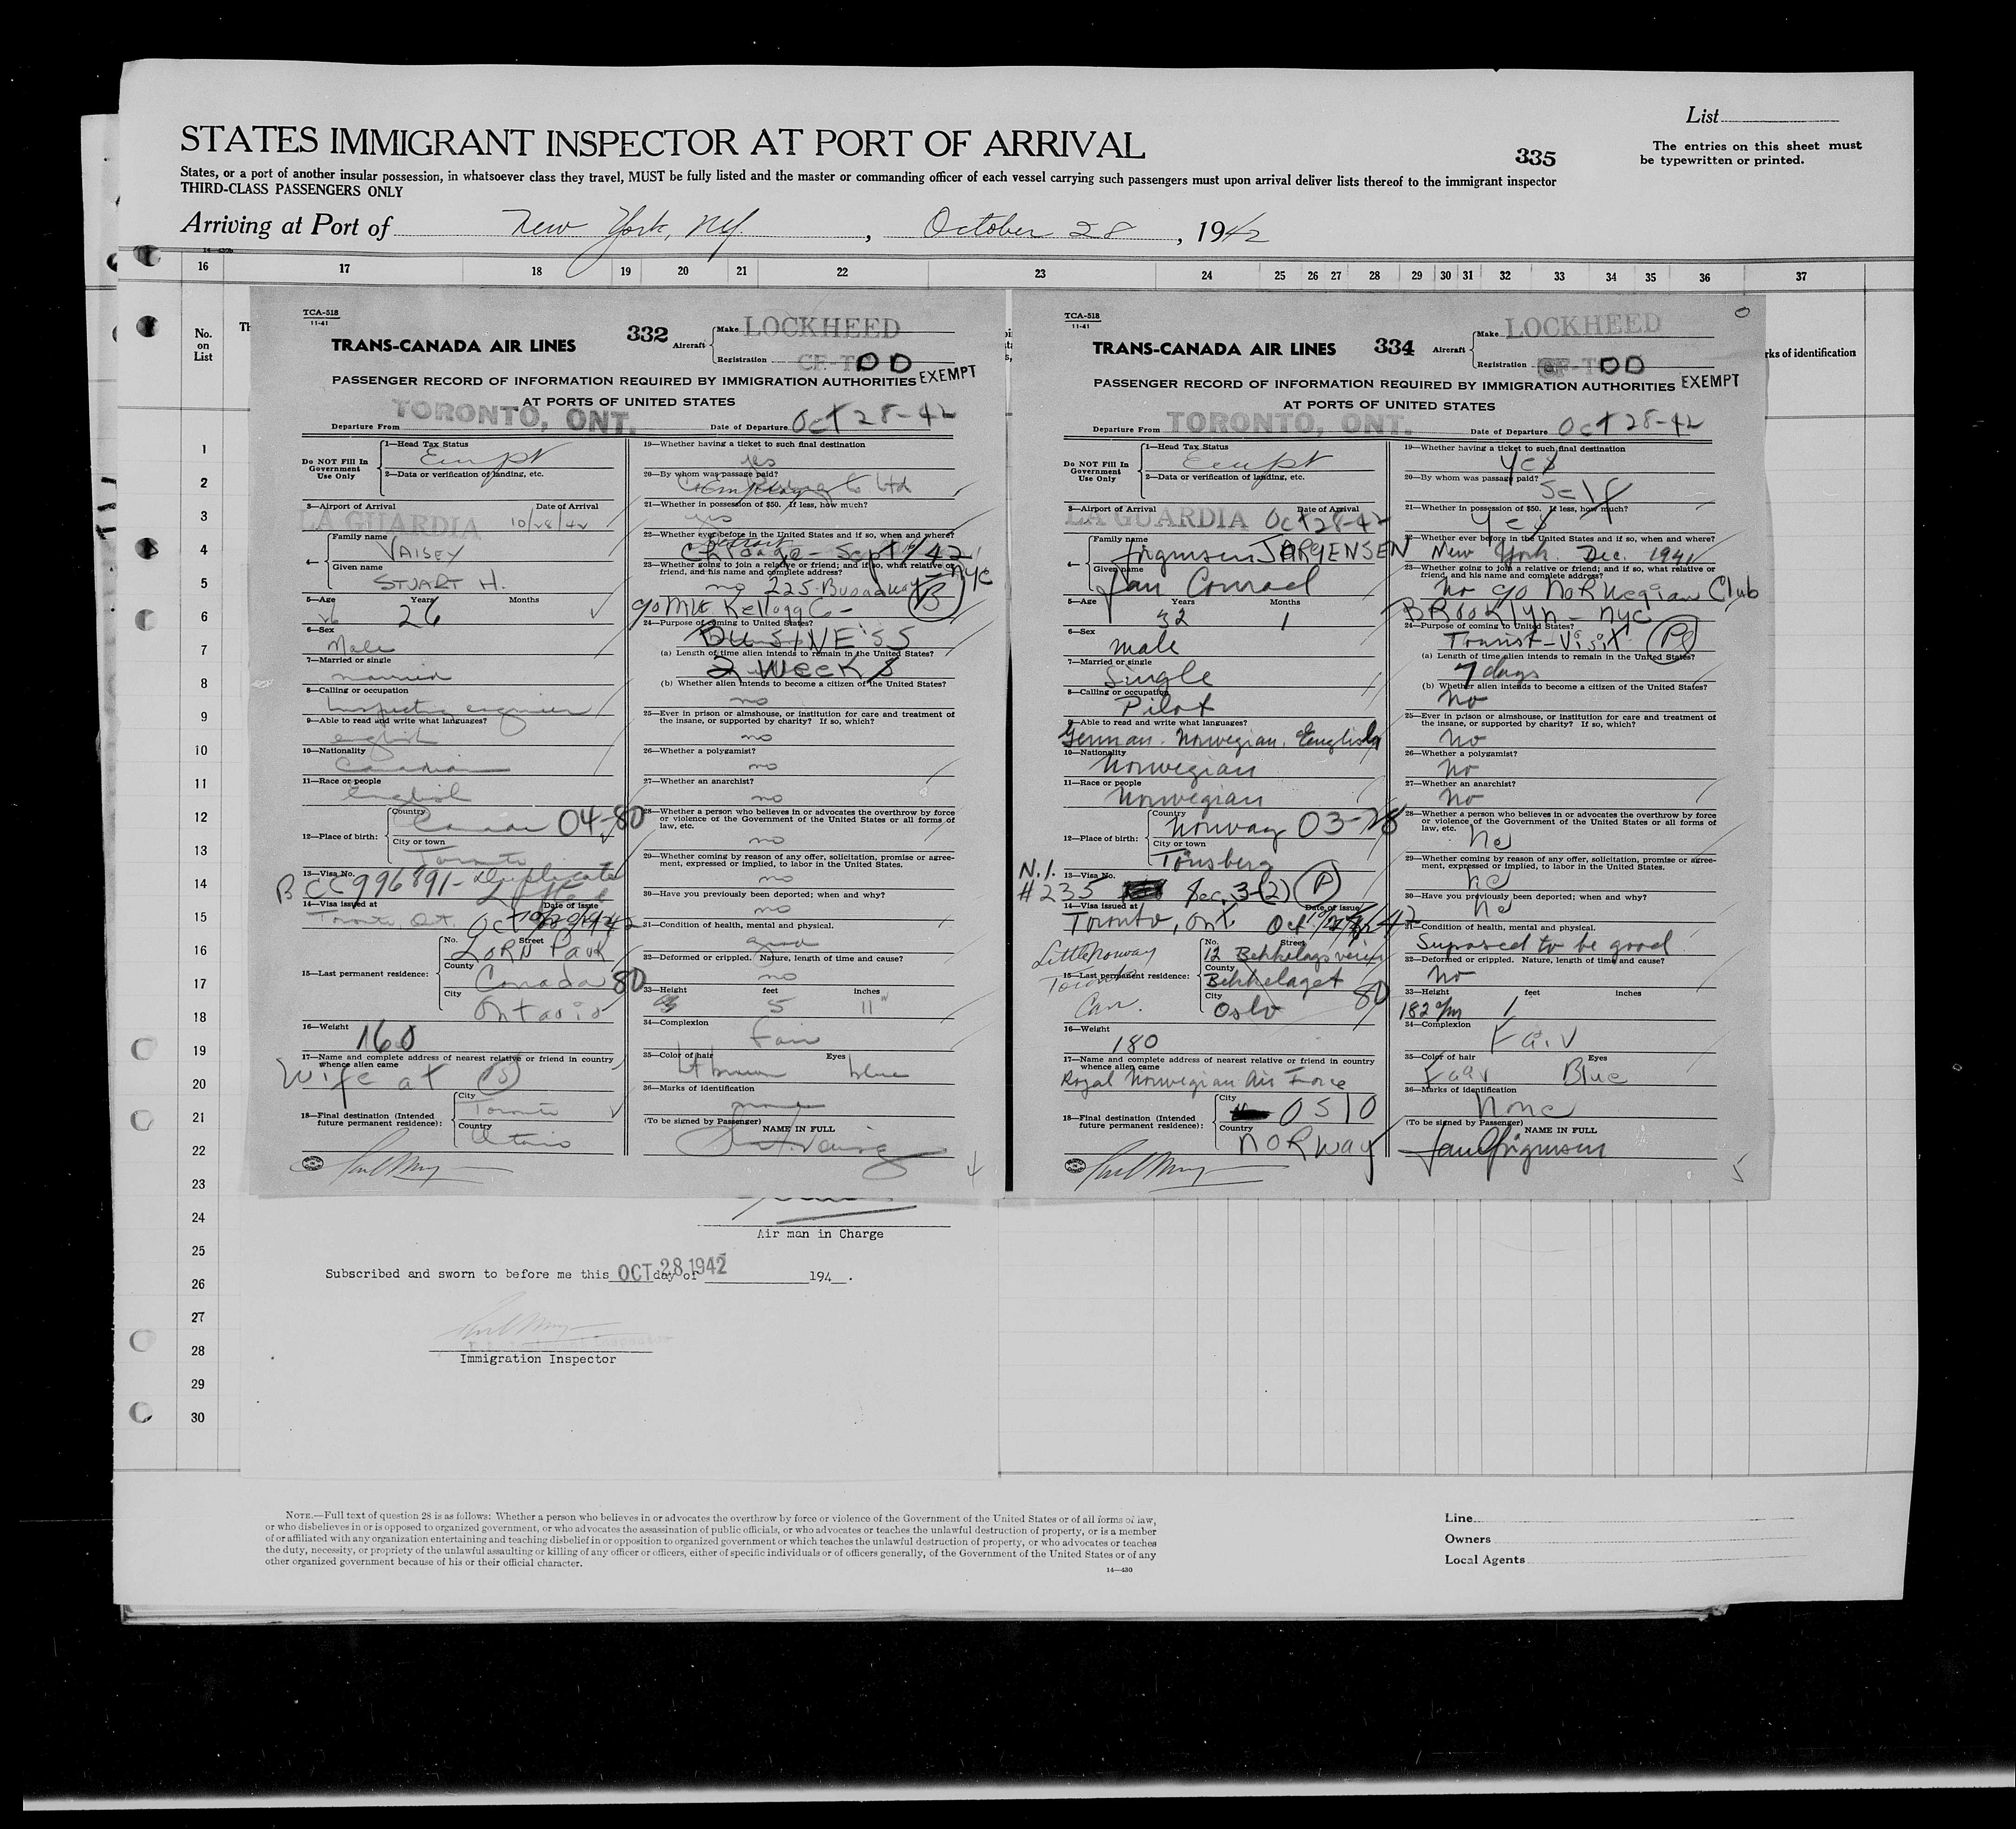 List
STATES IMMIGRANT INSPECTOR AT PORT OF ARRIVAL
335
The entries on this sheet must
be typewritten or printed.
States, or a port of another insular possession, in whatsoever class they travel, MUST be fully listed and the master or commanding officer of each vessel carrying such passengers must upon arrival deliver lists thereof to the immigrant inspector
THIRD-CLASS PASSENGERS ONLY
Arriving at Port of New York, NY. , October 28 , 1942
16 17 18 19 20 21 22 23 24 25 26 27 28 29 30 31 32 33 34 35 36 37
No.
on
List
rks of identification
1
2
3
4
5
6
7
8
9
10
11
12
13
14
15
16
17
18
19
20
21
22
23
24
25
26
27
28
29
30
TCA-518
11-41
TRANS-CANADA AIR LINES
332
Aircraft
Make LOCKHEED
Registration CF-TC DD
PASSENGER RECORD OF INFORMATION REQUIRED BY IMMIGRATION AUTHORITIES
EXEMPT
AT PORTS OF UNITED STATES
Departure From TORONTO, ONT.
Date of Departure Oct 28-42
Do NOT Fill In
Government
Use Only
1—Head Tax Status
Exempt
2—Data or verification of landing, etc.
3—Airport of Arrival
Date of Arrival
LA GUARDIA 10/28/42
4—
Family name
VAISEY
Given name
STUART H.
5—Age Years Months
26
6—Sex
Male
7—Married or single
married
8—Calling or occupation
Inspecting engineer
9—Able to read and write what languages?
english
10—Nationality
Canadian
11—Race or people
english
12—Place of birth:
Country
Canada 04-80
City or town
Toronto
13—Visa No.
BCC 996891- Duplicate
14—Visa issued at
Date of issue
Toronto, Ont.
15—Last permanent residence:
No. Street
LORN Park
County
Canada 80
City
Ontario
16—Weight
160
17—Name and complete address of nearest relative or friend in country
whence alien came
Wife at (15)
18—Final destination (Intended
future permanent residence):
City
Toronto
Country
Ontario
19—Whether having a ticket to such final destination
yes
20—By whom was passage paid?
Co Ltd
21—Whether in possession of $50. If less, how much?
yes
22—Whether ever before in the United States and if so, when and where?
Detroit
Chicago - Sept /42
23—Whether going to join a relative or friend; and if so, what relative or
friend, and his name and complete address?
no 225 Broadway NYC
c/o MW Kellogg Co -
B
24—Purpose of coming to United States?
BUSINESS
(a) Length of time alien intends to remain in the United States?
2 weeks
(b) Whether alien intends to become a citizen of the United States?
no
25—Ever in prison or almshouse, or institution for care and treatment of
the insane, or supported by charity? If so, which?
no
26—Whether a polygamist?
no
27—Whether an anarchist?
no
28—Whether a person who believes in or advocates the overthrow by force
or violence of the Government of the United States or all forms of
law, etc.
no
29—Whether coming by reason of any offer, solicitation, promise or agree-
ment, expressed or implied, to labor in the United States.
no
30—Have you previously been deported; when and why?
no
31—Condition of health, mental and physical.
good
32—Deformed or crippled. Nature, length of time and cause?
no
33—Height feet inches
5 11"
34—Complexion
Fair
35—Color of hair Eyes
Lt brown blue
36—Marks of identification
none
(To be signed by Passenger)
NAME IN FULL
TCA-518
11-41
TRANS-CANADA AIR LINES
334
Aircraft
Make LOCKHEED
Registration CF-TC DD
PASSENGER RECORD OF INFORMATION REQUIRED BY IMMIGRATION AUTHORITIES
EXEMPT
AT PORTS OF UNITED STATES
Departure From TORONTO, ONT.
Date of Departure Oct 28-42
Do NOT Fill In
Government
Use Only
1—Head Tax Status
Exempt
2—Data or verification of landing, etc.
3—Airport of Arrival
Date of Arrival
LA GUARDIA Oct 28-42
4—
Family name
Jørgensen JARGENSEN
Given name
Jan Conrad
5—Age Years Months
32 1
6—Sex
male
7—Married or single
Single
8—Calling or occupation
Pilot
9—Able to read and write what languages?
German. Norwegian. English
10—Nationality
Norwegian
11—Race or people
Norwegian
12—Place of birth:
Country
Norway 03-78
City or town
Tönsberg
13—Visa No.
N.I.
#235 Sec. 3-(2) P
14—Visa issued at
Date of issue
Toronto, Ont.
Little Norway
Toronto
Can.
15—Last permanent residence:
No. Street
12 Bekkelagsveien
County
Bekkelaget
City
Oslo 80
16—Weight
180
17—Name and complete address of nearest relative or friend in country
whence alien came
Royal Norwegian Air Force
18—Final destination (Intended
future permanent residence):
City
OSLO
Country
NORWAY
19—Whether having a ticket to such final destination
yes
20—By whom was passage paid?
Self
21—Whether in possession of $50. If less, how much?
Yes
22—Whether ever before in the United States and if so, when and where?
New York. Dec. 1941
23—Whether going to join a relative or friend; and if so, what relative or
friend, and his name and complete address?
No c/o NORWegian Club
BROOKlyn - NYC
24—Purpose of coming to United States?
Transit-Visit
(a) Length of time alien intends to remain in the United States?
7 days
(b) Whether alien intends to become a citizen of the United States?
No
25—Ever in prison or almshouse, or institution for care and treatment of
the insane, or supported by charity? If so, which?
No
26—Whether a polygamist?
No
27—Whether an anarchist?
No
28—Whether a person who believes in or advocates the overthrow by force
or violence of the Government of the United States or all forms of
law, etc.
No
29—Whether coming by reason of any offer, solicitation, promise or agree-
ment, expressed or implied, to labor in the United States.
no
30—Have you previously been deported; when and why?
no
31—Condition of health, mental and physical.
Suposed to be good
32—Deformed or crippled. Nature, length of time and cause?
No
33—Height feet inches
182 cm
34—Complexion
Fair
35—Color of hair Eyes
Fair Blue
36—Marks of identification
None
(To be signed by Passenger)
NAME IN FULL
Jan C Jørgensen
Air man in Charge
Subscribed and sworn to before me this OCT 28 1942 day of 194 .
Immigration Inspector
NOTE.—Full text of question 28 is as follows: Whether a person who believes in or advocates the overthrow by force or violence of the Government of the United States or of all forms of law,
or who disbelieves in or is opposed to organized government, or who advocates the assassination of public officials, or who advocates or teaches the unlawful destruction of property, or is a member
of or affiliated with any organization entertaining and teaching disbelief in or opposition to organized government or which teaches the unlawful destruction of property, or who advocates or teaches
the duty, necessity, or propriety of the unlawful assaulting or killing of any officer or officers, either of specific individuals or of officers generally, of the Government of the United States or of any
other organized government because of his or their official character.
14—430
Line
Owners
Local Agents